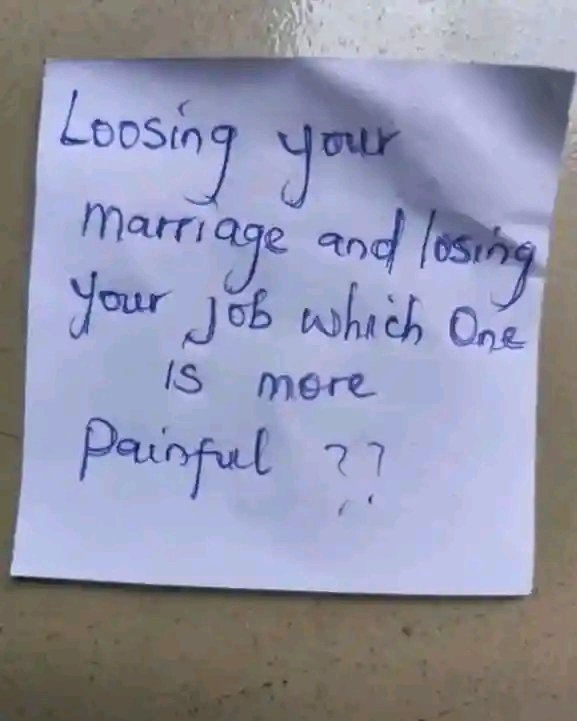 Loosing your
marriage and losing
your job which One
is more
Painful ??